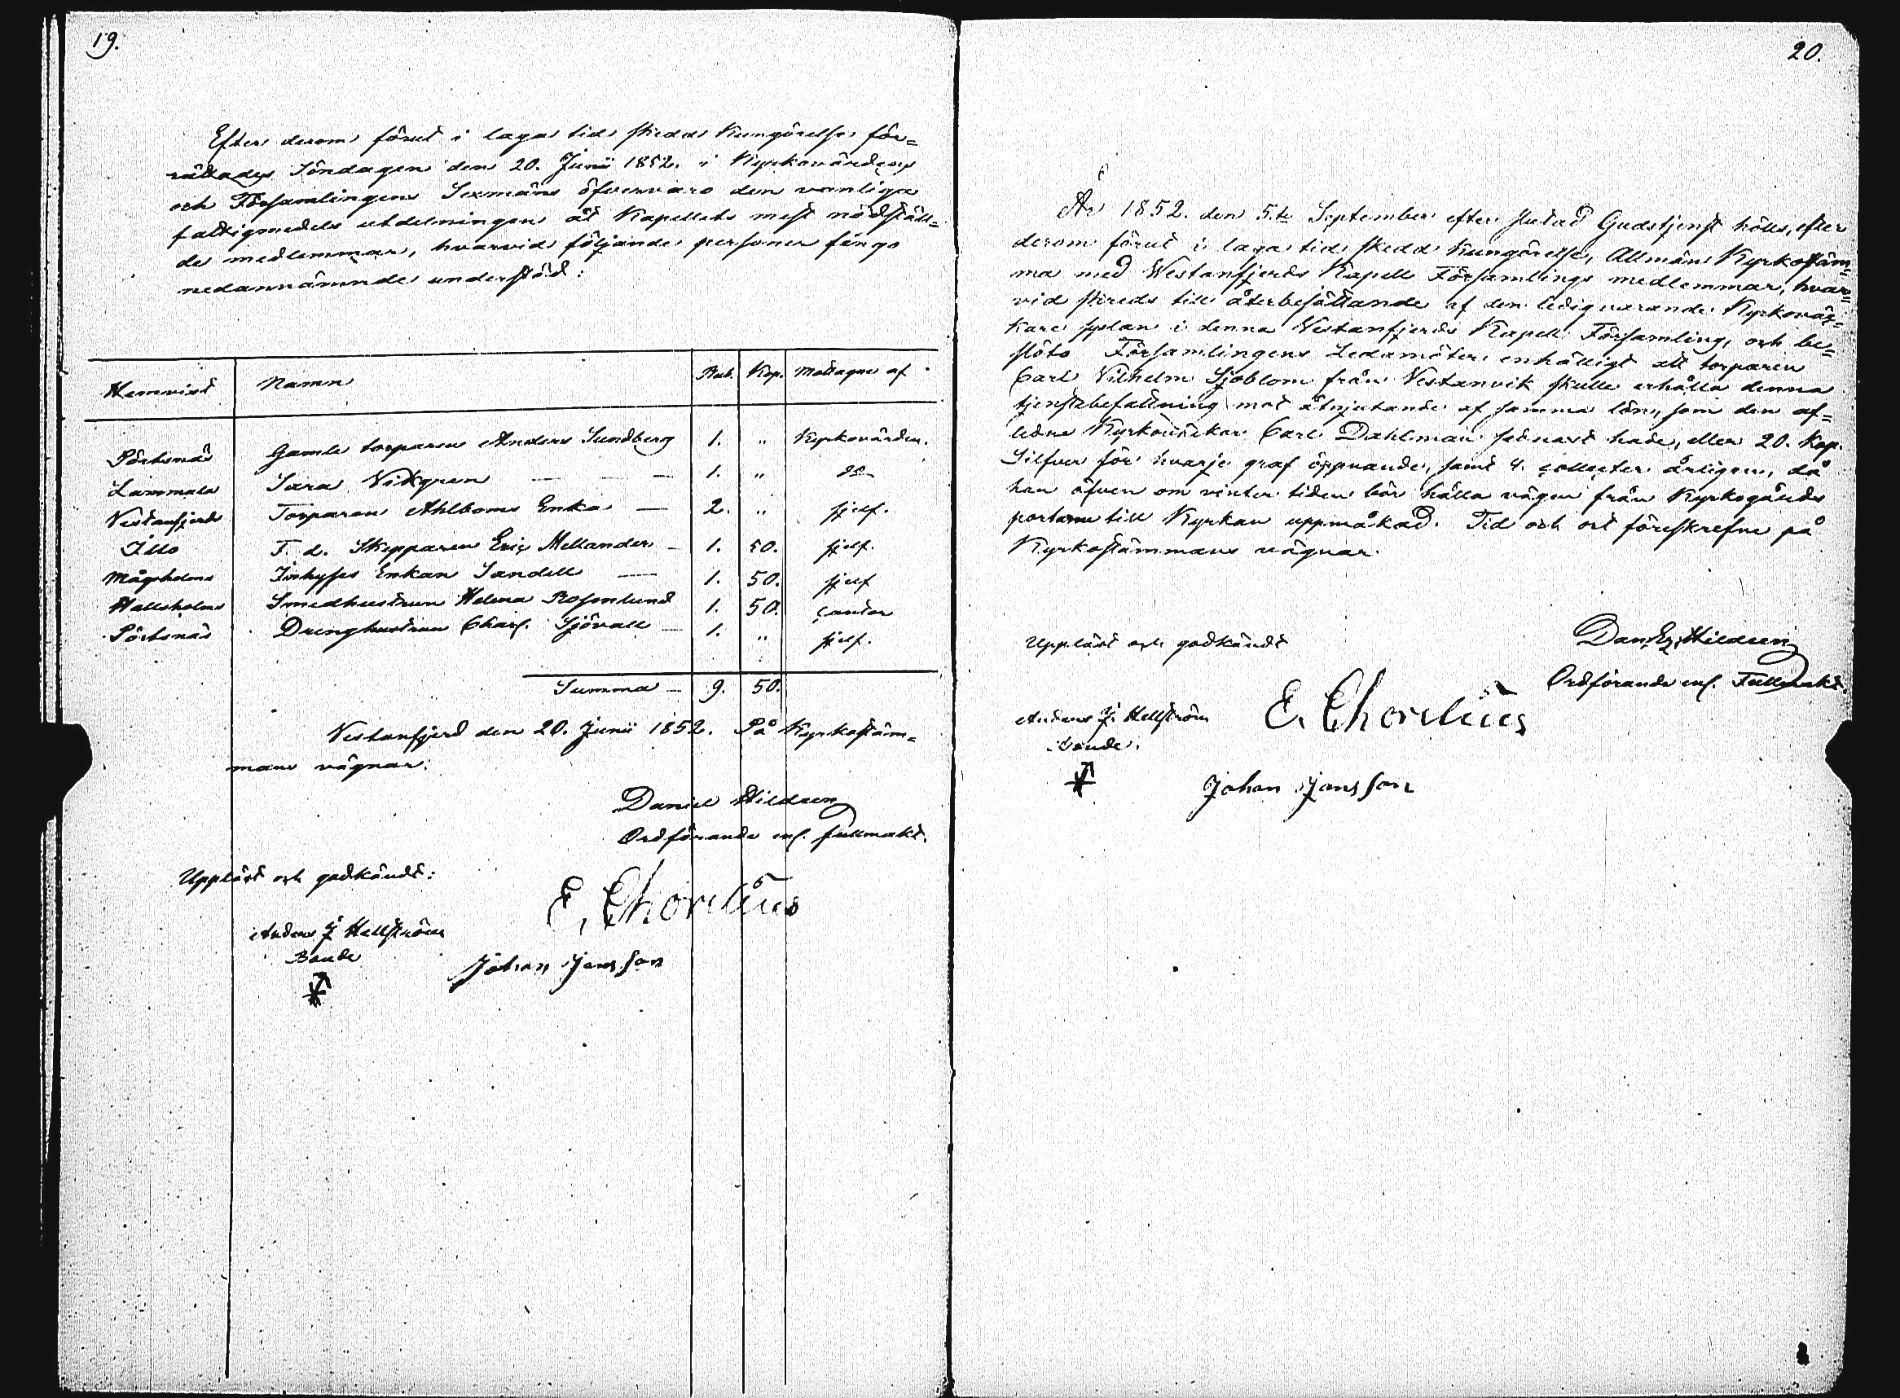 19.
Efter derom förut i laga tid skedd Kungörelse för=
rättades Söndagen den 20. Junii 1852. i Kyrkovärdens
och Församlingens Sexmäns öfvervaro den vanliga
fattigmedels utdelningen åt Kapellets mest nödställ=
de medlemmar, hvarvid följande personer fingo
nedannämnde understöd:
Hemvist Namn Rub. Kop. Mottagne af
Pörtsnäs Gamle torparen Anders Sundberg 1. " Kyrkovärden.
Lammala Sara Vikgren — — 1. " do
Vestanfjerd Torparen Ahlboms Enka — 2. " sjelf.
Illo F. d. Skepparen Eric Mellander — 1. 50. sjelf.
Mågsholm Inhyses Enkan Sandell — 1. 50. sjelf
Hallsholm Smedhustrun Helena Rosenlund 1. 50. cantor
Pörtsnäs Drenghustrun Charl. Sjövall — 1. " sjelf.
Summa — 9. 50.
Vestanfjerd den 20. Junii 1852. På Kyrkostäm=
mans vägnar:
Daniel Hildeen
Ordförande enl. fullmakt.
Uppläst och godkändt:
E. Chorelius
Anders J Hellström
Bonde
Johan Jansson
20.
År 1852. den 5.te September efter slutad Gudstjenst hölls, efter
derom förut i laga tid skedd Kungörelse, Allmän Kyrkostäm=
ma med Westanfjerds Kapell Församlings medlemmar, hvar=
vid skreds till återbesättande af den ledigvarande Kyrkoväk=
tare sysslan i denna Vestanfjerds Kapell Församling, och be=
slöto Församlingens Ledamöter enhälligt att torparen
Carl Vilhelm Sjöblom från Vestanvik skulle erhålla denna
tjenstebefattning mot åtnjutande af samma lön, som den af=
lidne Kyrkoväktar Carl Dahlman sednast hade, eller 20. Kop.
Silfver för hvarje graf öppnande, samt 4. collecter årligen, då
han äfven om vinter tiden bör hålla vägen från Kyrkogårds
portarne till Kyrkan uppmåkad. Tid och ort föreskrefne på
Kyrkostämmans vägnar.
Dan. Ez. Hildeen
Uppläst och godkändt
Ordförande enl. Fullmakt.
E. Chorelius
Anders J. Hellström
Bonde.
Johan Jansson